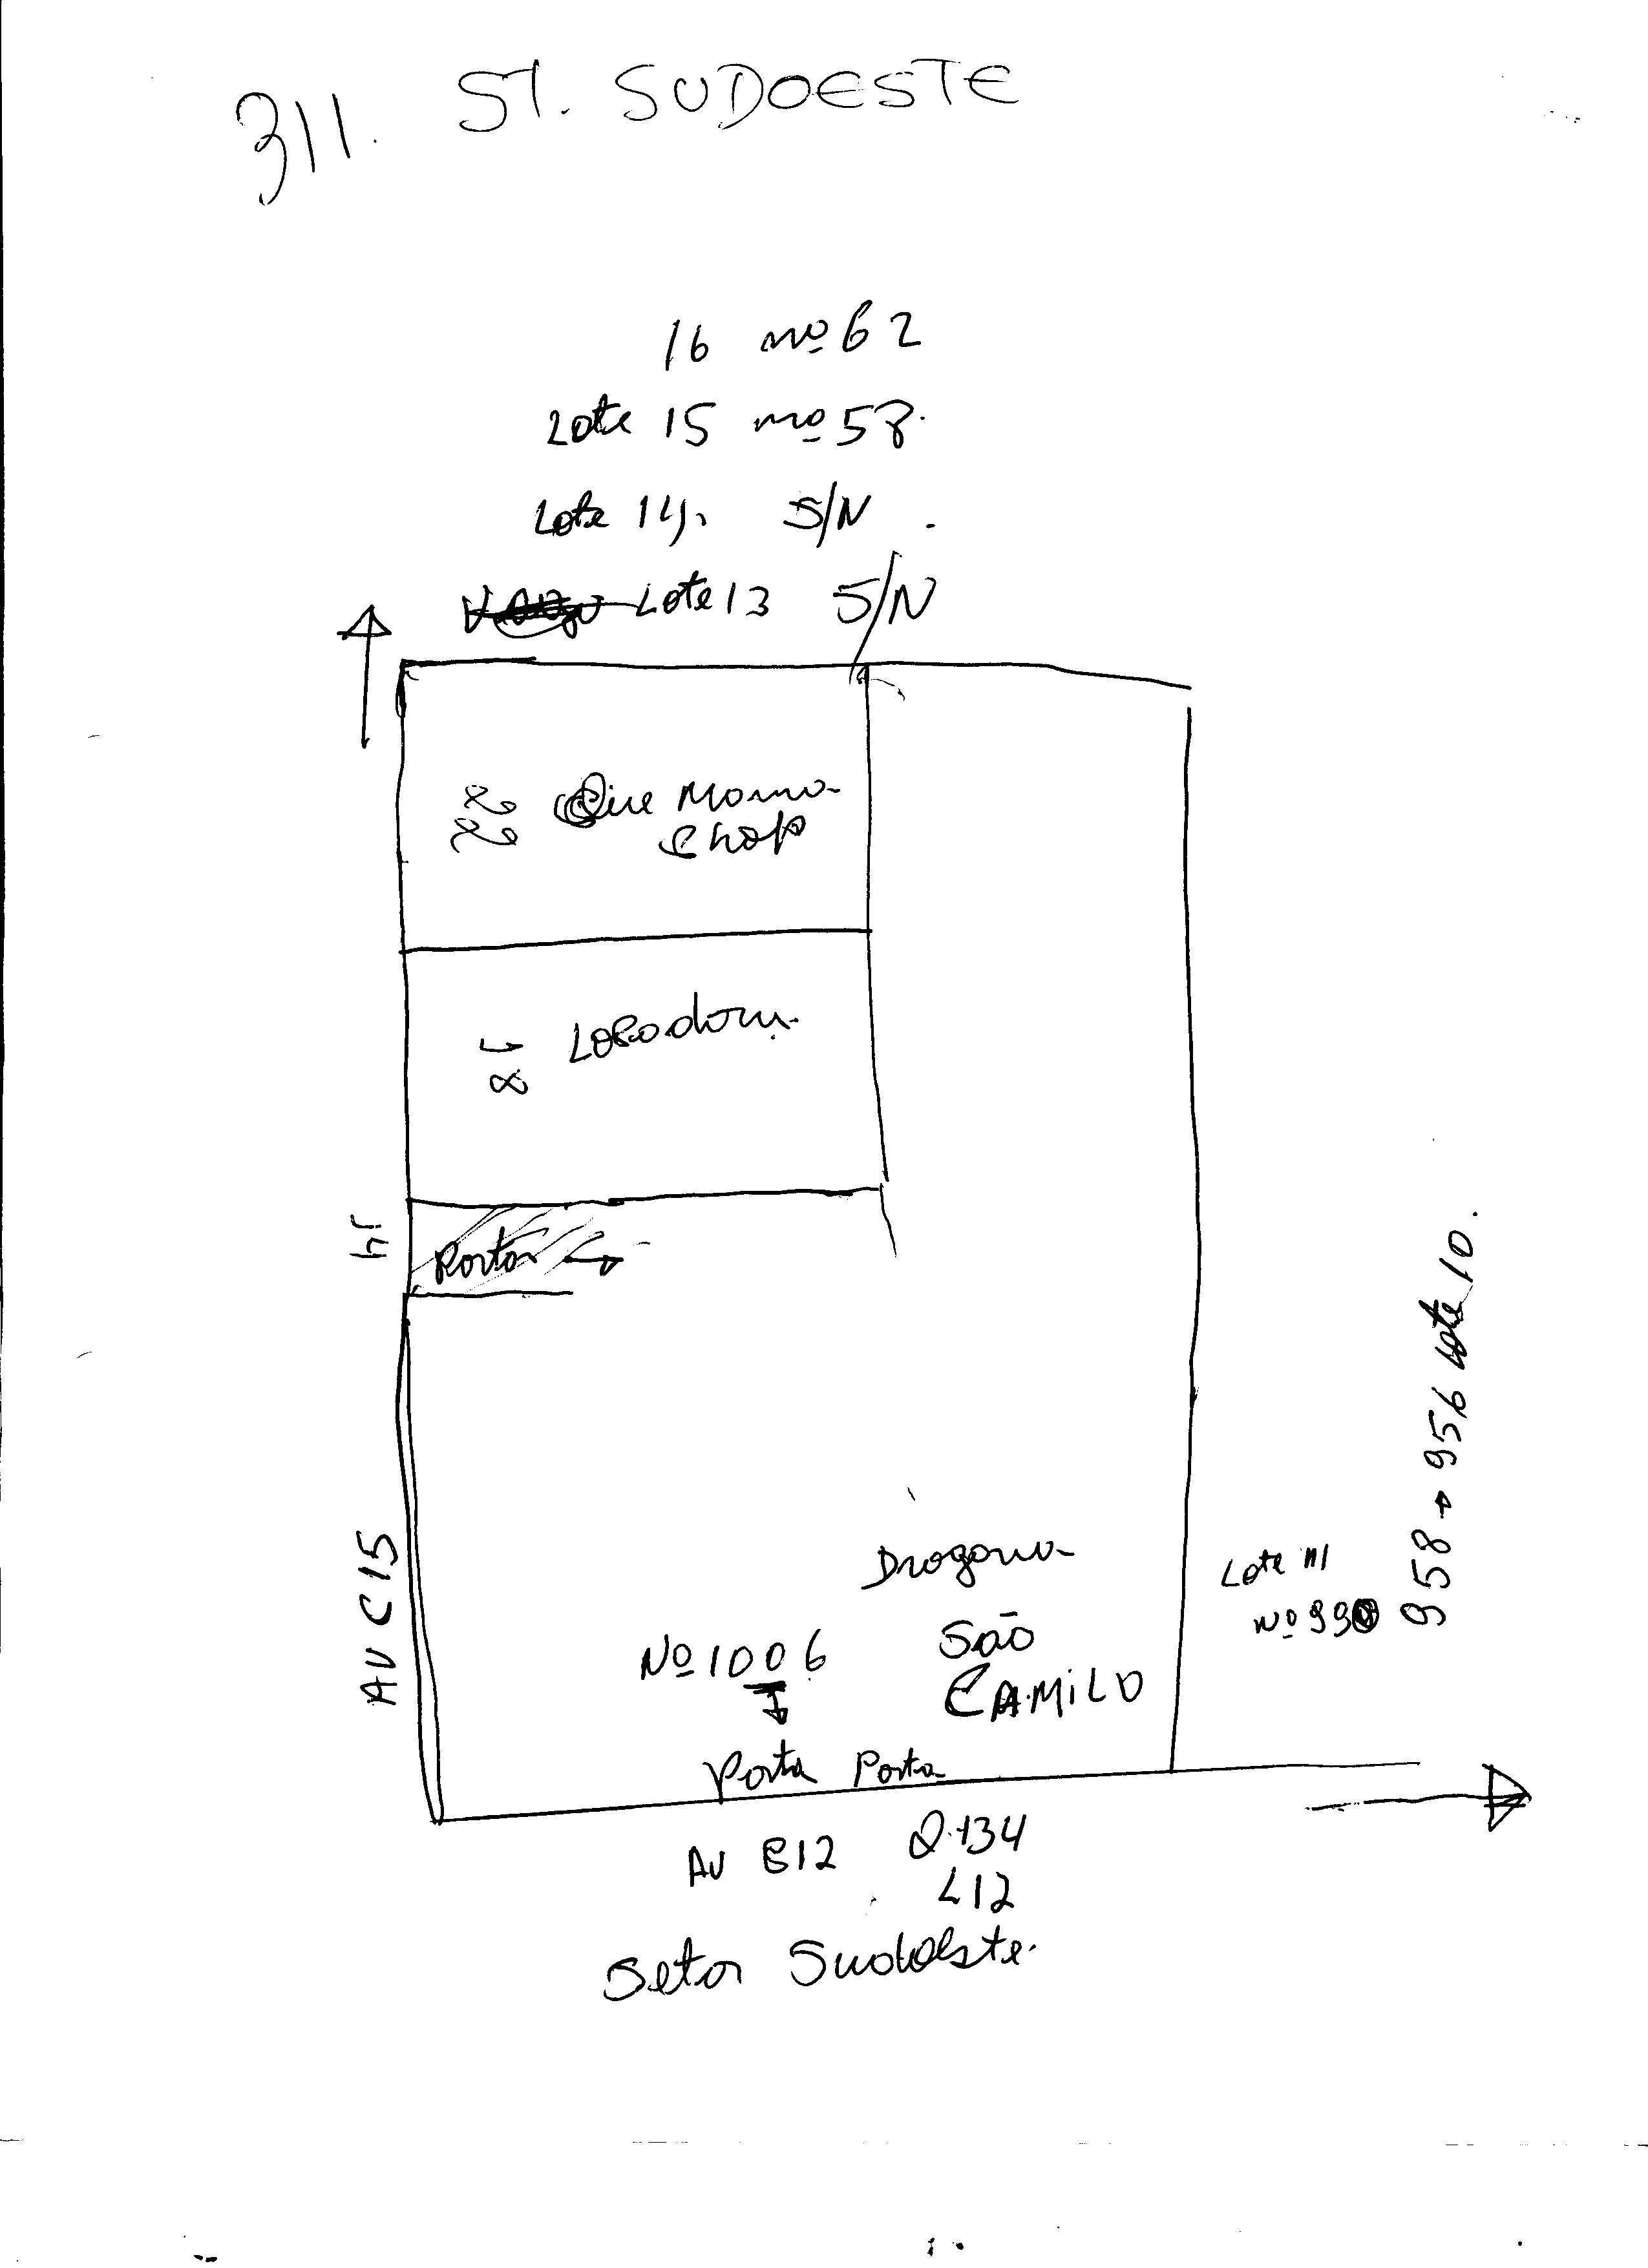 311. ST. SUDOESTE
16 nº 62
Lote 15 nº 58.
Lote 14. S/N
Lote 13 S/N
22
shop
18
14
Porta
AV C15
958 → 956 Lote 10.
Drogaria
São
CAMILO
Nº 1006
Lote 11
Nº 990
Porta Porta
AV B12 Q.134
L12
Setor Sudoeste.